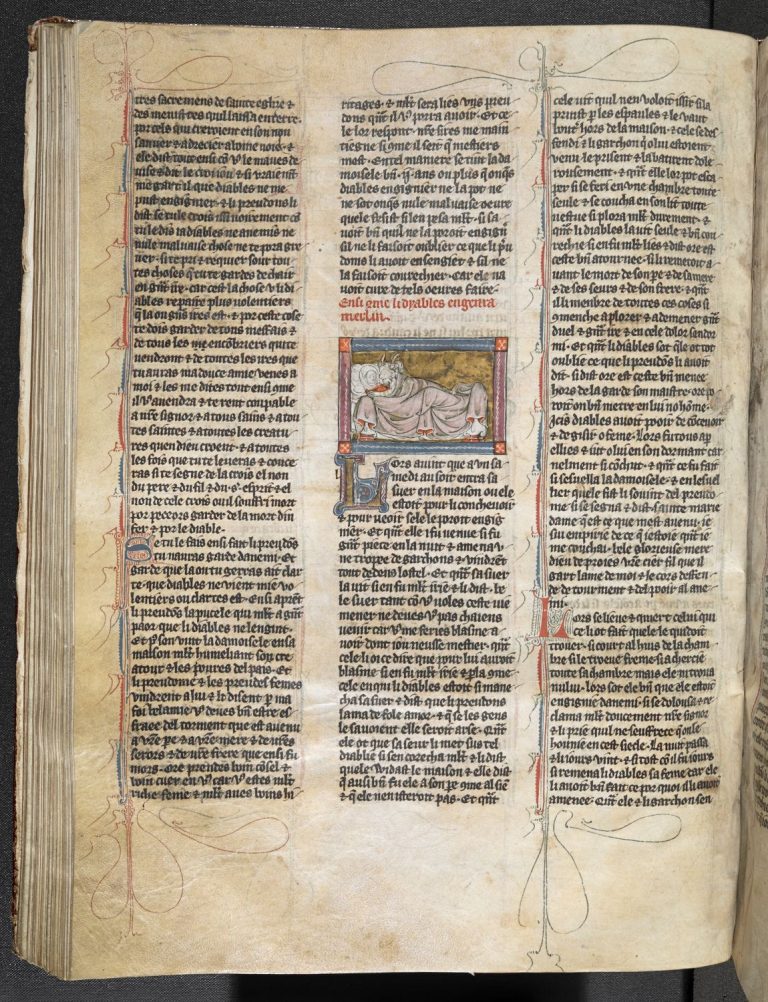 tres sacremens de sainte eglise ⁊
des menistres quil laissa en terre ·
por cels qui croiroient en son non
sauver ⁊ adrecier a boine voie · ⁊
ele dist tout ensi cō vous le maves de
vise ⁊ dit le croi iou ⁊ si vraiemēt
me gart il que diables ne me
puist engignier · ⁊ li preudons li
dist se tu le crois issi voirement cō
tu le dis ia diables ne anemis ne
nule malvaise chose ne te pora gre
ver · si te pri ⁊ requier sour tou
tes choses que tu te gardes de chair
en grāt ire · car cest la chose v li di
ables repaire plus volentiers
q̄ la ou grās ires est · ⁊ por ceste cose
te dois garder de tous meffais ⁊
de tous les encōbriers qui te
vendront ⁊ de toutes les ires que
tu auras ma douce amie venes a
moi ⁊ les me dites tout ensi q̄me
il vous avendra ⁊ te rent coupable
a nr̄e signor ⁊ a tous sains ⁊ a tou
tes saintes ⁊ a toutes les creatu
res qui en dieu croient · ⁊ a toutes
les fois que tu te leveras ⁊ couce
ras si te segne de la crois el non
du pere ⁊ du fil ⁊ du s · esperit ⁊ el
non de cele crois ou il souffri mort
por pecceors garder de la mort din
fer ⁊ por le diable ·
Se tu le fais ensi fait li preudōs
tu nauras garde danemi · Et
garde que la ou tu gerras ait clar
te · que diables ne vient mie vo
lentiers ou clartes est · ensi aprēt
li preudōs la pucele qui ml̄t a grāt
paor que li diables ne lengint ·
Et vint la damoisele en sa
maison ml̄t humeliant son cre
atour ⁊ les poures del pais · Et
li preudome ⁊ les preudes femes
vindrent a lui ⁊ li disent par ma
foi bele amie vous deves bn̄ estre es
fraee del torment que est avenu
a vr̄e pe ⁊ a vr̄e mere ⁊ de vr̄es
serors ⁊ de vr̄e frere que ensi fu
mors · ore prendes boin cōsel ⁊
boin cuer en vous car vous estes ml̄t
riche feme ⁊ ml̄t aves boins hi
ritages · ⁊ ml̄t sera lies uns preu
dons quāt il vous pora avoir · Et ce
le lor respont · nr̄e sires me main
tiegne si q̄me il set q̄ mestiers
mest · En tel maniere se tint la da
moisele bn̄ · ans ou plus q̄ onqs
diables engignier ne la pot ne
ne sot onqs nule malvaise oevre
quele fesist si len pesa ml̄t · si sa
voit bn̄ quil ne la poroit engign
sil ne li faisoit oublier ce que li preu
doms li avoit ensengier ⁊ sil ne
la faisoit courechier · Car ele na
voit cure de tels oevres faire ·
Ensi q̄me li dyables engenra
merlin ·
Lors avint que a un sa
medi au soir entra sa
suer en la maison ou ele
estoit pour li conchevoir
⁊ pour veoir sele le poroit engig
nier · Et quāt ele i fu venue si fu
grāt piece en la nuit ⁊ amena v
ne troppe de garchons ⁊ vindrēt
tout dedens lostel · Et quāt sa suer
la vit si en fu ml̄t irie ⁊ li dist · be
le suer tant cō vous voles ceste vie
mener ne deves vous pas chaiens
venir car vous me feries blasme a
voir dont iou neusse mestier · quāt
cele li oi ce dire que pour lui auroit
blasme si en fu ml̄t irie ⁊ parla q̄me
cele en qui li diables estoit si mane
cha sa suer ⁊ dist · que li preudons
lama de fole amor · ⁊ q̄ se les gens
le savoient elle seroit arse · Quāt
ele ot que sa seur li met sus tel
diablie si sen corecha ml̄t ⁊ li dist
quele vidast le maison ⁊ elle dist
q̄ ausi bn̄ fu ele a son pe q̄me al siē
⁊ q̄ ele nen isteroit pas · Et quāt
cele vit quil nen voloit issir si la
prinst par les espaules ⁊ le vaut
bouter hors de la maison · ⁊ cele se des
fendi ⁊ li garchon q̄ lui estoient
venu le prisent ⁊ la batirent dole
rousement · ⁊ quāt elle lor pot esca
per si se feri en une chambre toute
seule ⁊ se coucha en son lit toute
vestue si plora ml̄t durement · ⁊
quāt li diables la vit seule ⁊ bn̄ cou
rechie si en fu ml̄t lies ⁊ dist ore est
ceste bn̄ atornee · si li remetoit a
vant le mort de son pe ⁊ de sa mere
⁊ de ses seurs ⁊ de son frere · ⁊ quāt
il li menbre de toutes ces coses si
q̄menche a plorer ⁊ a demener grāt
duel ⁊ grāt ire ⁊ en cele dolor sendor
mi · Et quāt li diables sot q̄le ot tot
oublie ce que li preudōs li avoit
dit · si dist ore est ceste bn̄ menee
hors de la garde son maistre · ore po
roit on bn̄ metre en lui no hōme ·
Icis diables avoit pooir de cōcevoir
⁊ de gesir o feme · Lors fu tous ap
ellies ⁊ iut o lui en son dormant car
nelment si cōchut · ⁊ quāt ce fu fait
si sesvella la damoisele · ⁊ en lesvel
lier quele fist li sovint del preudo
me · si se segna ⁊ dist · sainte marie
dame q̄st ce que mest avenu · ie
sui empirie de ce q̄ iestoie quāt ie
me couchai · bele gloriouse mere
dieu de proies vr̄e cier fil que il
gart lame de moi ⁊ le cors deffen
de de tourment ⁊ del pooir al ane
mi ·
Lors se lieve ⁊ quiert celui qui
ce li ot fait quele le quidoit
trover · si court al huis de la cham
bre si le trouve freme · si a cherciē
toute sa chambre mais ele ni trova
nului · lors sot ele bn̄ que ele estoit
engignie danemi · si se dolousa ⁊ re
clama ml̄t doucement nr̄e signor
⁊ li prie quil ne seuffrece q̄ ele
hounie en cest siecle · La nuit passa
⁊ li iours vint · ⁊ si tost cō il fu iours
si remena li diables sa feme car ele
li avoit bn̄ fait ce por quoi il li avoit
amenee · Quāt ele ⁊ li garchon sen